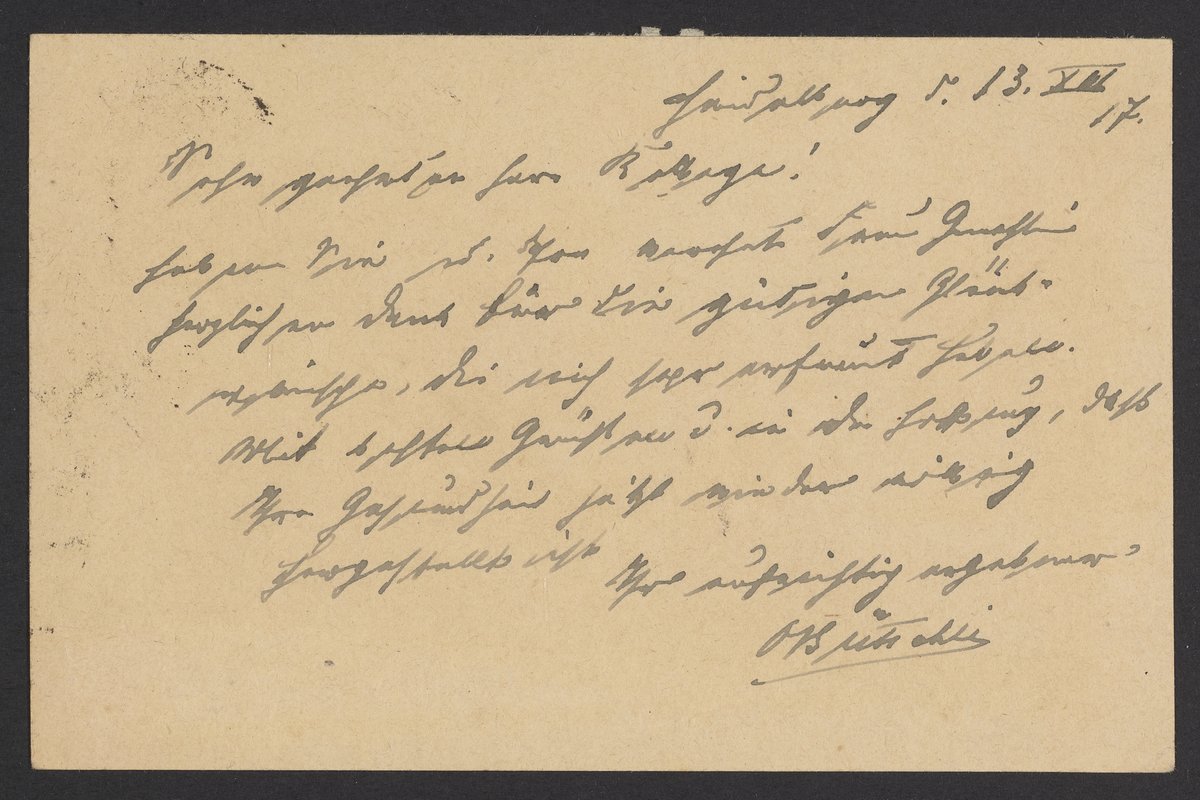 Heidelberg d. 13. XII
17.
Sehr geehrter Herr Kollege!
haben Sie u. Ihre verehrte Frau Gemahlin
herzlichen Dank für die gütigen Glück-
wünsche, die mich sehr erfreut haben.
Mit besten Grüßen u. in der Hoffnung, dass
Ihre Gesundheit jetzt wieder völlig
hergestellt ist
Ihr aufrichtig ergebener
OBütschli